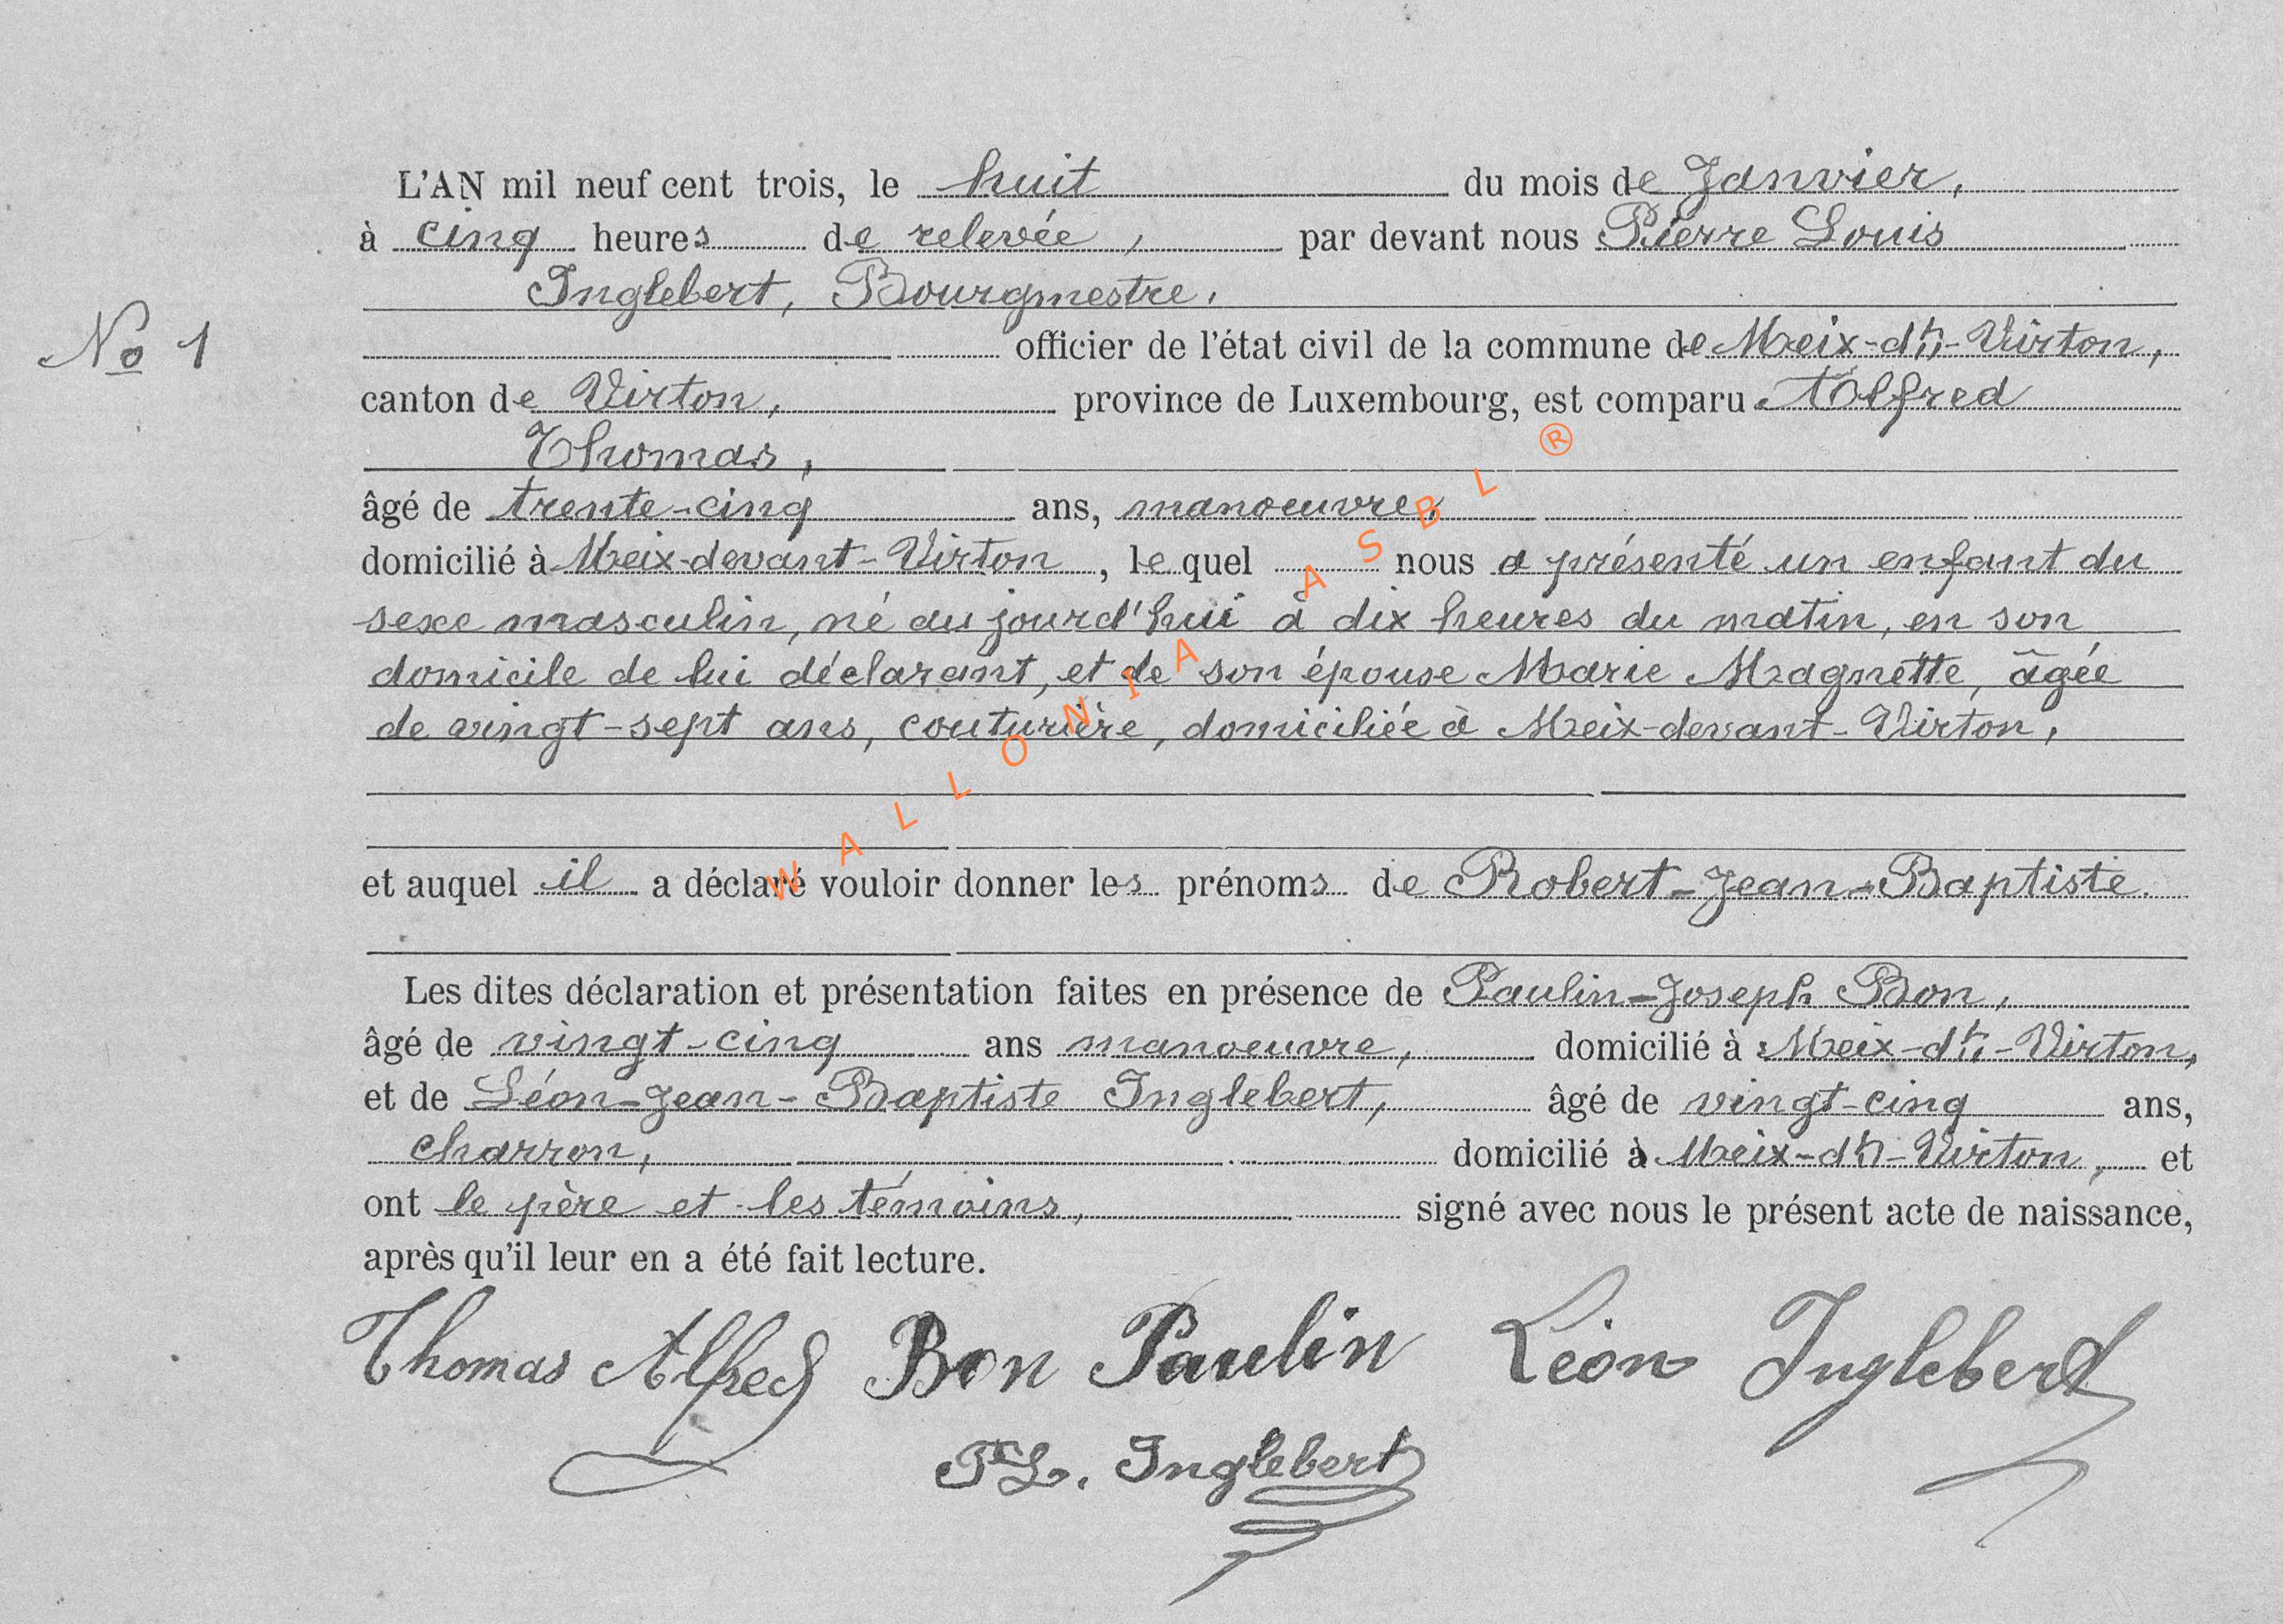 L'AN mil neuf cent trois, le huit du mois de Janvier,
à cinq heures de relevée, par devant nous Pierre Louis
Inglebert, Bourgmestre,
No 1
officier de l'état civil de la commune de Meix-dt-Virton,
canton de Virton, province de Luxembourg, est comparu Alfred
Thomas,
âgé de trente-cinq ans, manoeuvre,
domicilié à Meix-devant-Virton, le quel nous a présenté un enfant du
sexe masculin, né au jourd'hui à dix heures du matin, en son
domicile de lui déclarant, et de son épouse Marie Magnette, âgée
de vingt-sept ans, couturière, domiciliée à Meix-devant-Virton,
et auquel il a déclaré vouloir donner les prénoms de Robert-Jean-Baptiste.
Les dites déclaration et présentation faites en présence de Paulin-Joseph Bon,
âgé de vingt-cinq ans manoeuvre, domicilié à Meix-dt-Virton,
et de Léon-Jean-Baptiste Inglebert, âgé de vingt-cinq ans,
charron, domicilié à Meix-dt-Virton, et
ont le père et les témoins, signé avec nous le présent acte de naissance,
après qu'il leur en a été fait lecture.
Thomas Alfred Bon Paulin Léon Inglebert
Pre L. Inglebert
WALLONIA ASBL ®